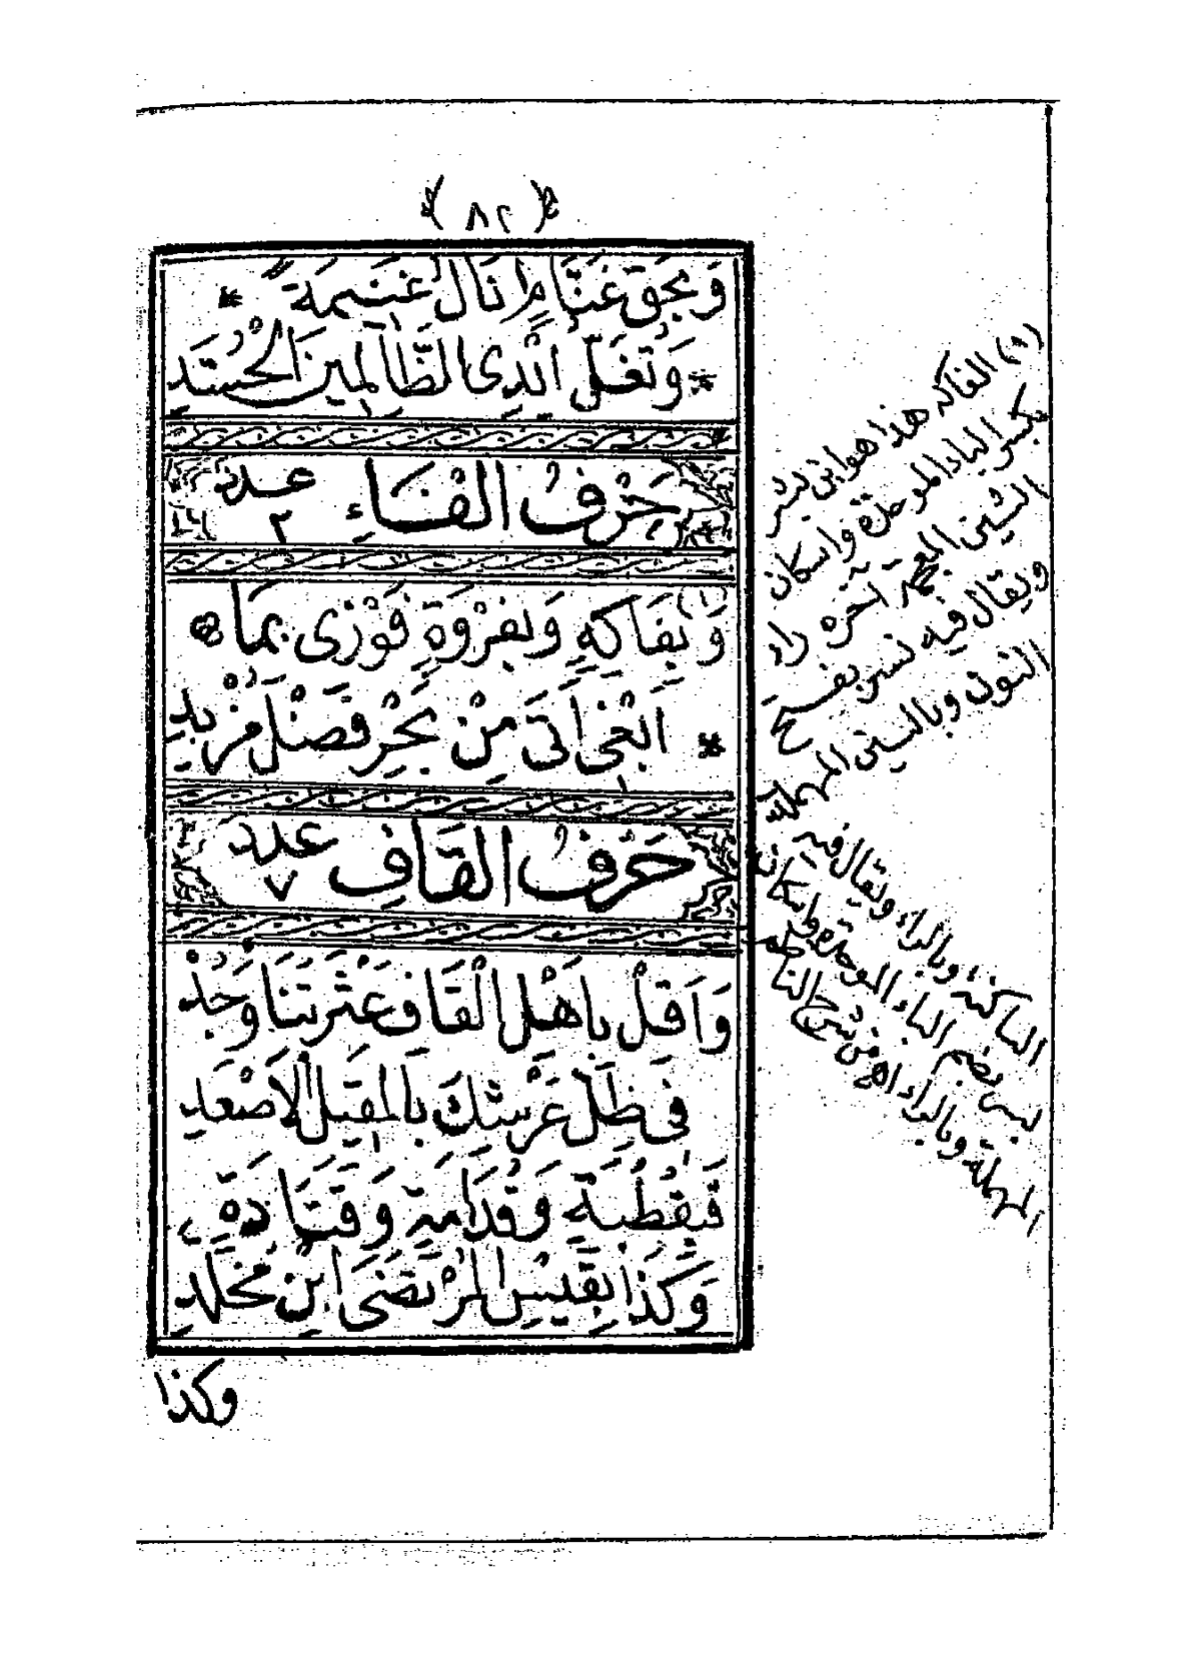 (٨٢)
وَبِحَقِّ غَنَّامٍ اَنَالُ غَنِيمَةً *
* وَتَفُلُّ اَيْدِى الظَّالِمِينَ الْحُسَّدِ
حَرْفُ الْفَاءِ عدد ٢
(١) وَبِفَاكِهٍ وَبِفَرْوَةٍ فَوْزِى بِمَا
* اَبْغِى اَتَى مِنْ بَحْرِ فَضْلٍ مُزْبِدِ
حَرْفُ الْقَافِ عدد ٧
وَاَقِلْ بِاَهْلِ الْقَافِ عَثْرَتَنَا وَجُدْ
فِى ظِلِّ عَرْشِكَ بِالْمَقِيلِ الْاَصْعَدِ
فَبِقُطْبَةٍ وَقُدَامَةٍ وَقَتَادَةٍ
وَكَذَا بِقَيْسِ الْمُرْتَضَى ابْنِ مُخَلَّدِ
وكذا
(١) الفاكه هذا هو ابن بشر
بكسر الباء الموحدة واسكان
الشين المعجمة آخره راء
ويقال فيه نسر بفتح
النون وبالسين المهملة
الساكنة وبالراء ويقال فيه
بسر بضم الباء الموحدة واسكان
المهملة وبالراء اهـ من شرح الناظم